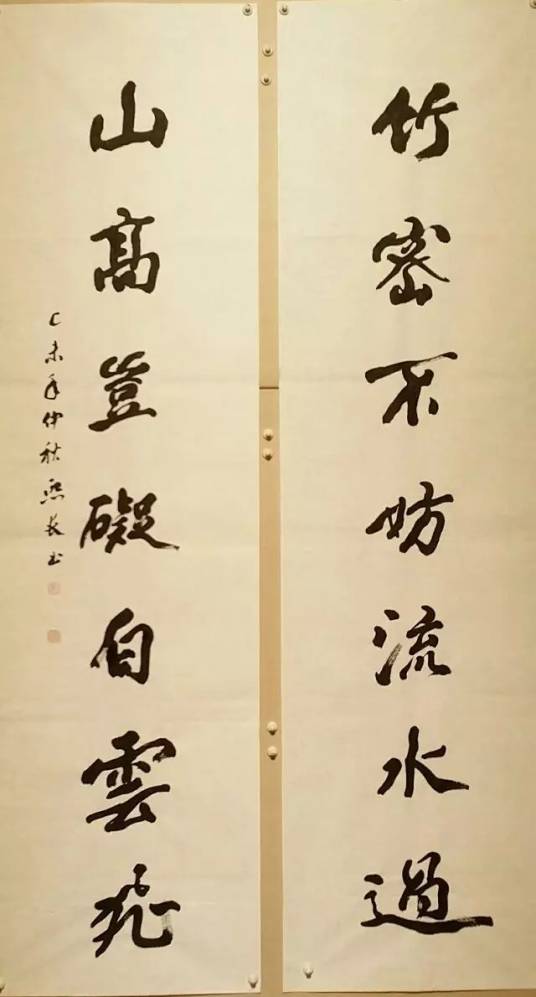 竹密不妨流水過
山高豈礙白雲飛
乙未年仲秋熙长书